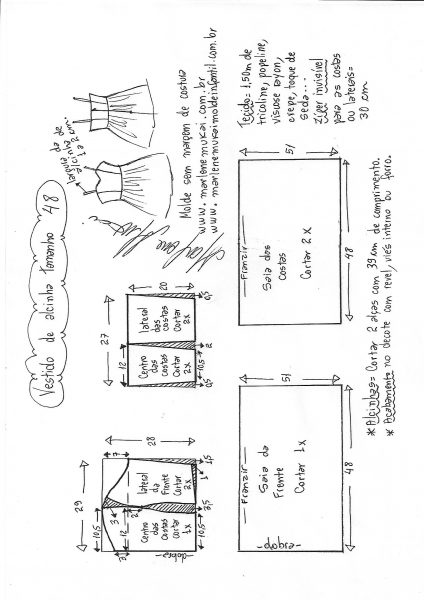 Vestido de alcinha tamanho 48
largura da
alcinha de
1 a 2 cm.
Molde sem margem de costura
www.marlenemukai.com.br
www.marlenemukaimoldeinfantil.com.br
Tecido= 1,50m de
tricoline, popeline,
viscose rayon,
crepe, toque de
seda...
Zíper invisível
para as costas
ou laterais=
30 cm
29
28
10,5
12
3
3
7
2
Centro
das
costas
cortar
1x
lateral
da
Frente
Cortar
2x
dobra
10,5
3,5
1
1,5
27
20
12
Centro
das
costas
Cortar
2x
lateral
das costas
Cortar
2x
0,5
10,5
2
0,5
Franzir
Saia da
Frente
Cortar 1x
dobra
51
48
Franzir
Saia das
costas
Cortar 2x
51
48
* Alcinhas= Cortar 2 alças com 39 cm de comprimento.
* Acabamento no decote com revel, viés interno ou forro.